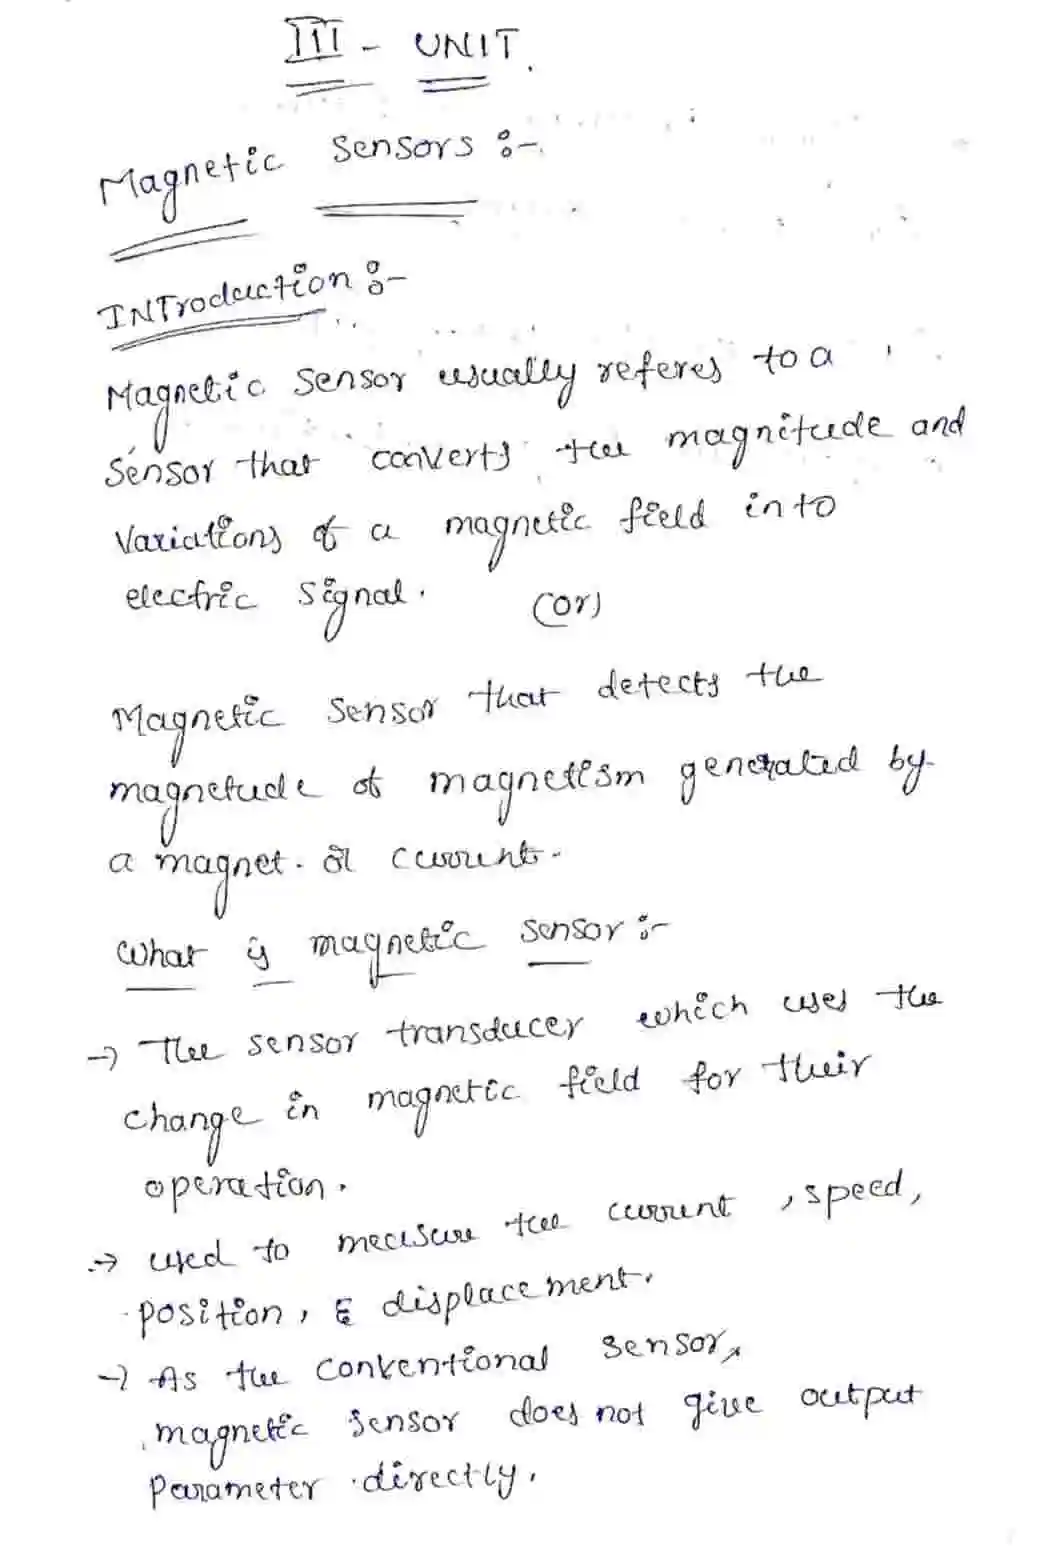 III - UNIT.
Magnetic Sensors :-
INTroduction :-
Magnetic Sensor usually referes to a
Sensor that converts the magnitude and
Variations of a magnetic field into
electric signal. (or)
Magnetic Sensor that detects the
magnetude of magnetism generated by
a magnet. or current.
What is magnetic sensor :-
→ The sensor transducer which uses the
change in magnetic field for their
operation.
→ used to measure the current , speed,
position, & displacement.
→ As the conventional sensor,
magnetic sensor does not give output
Parameter directly.